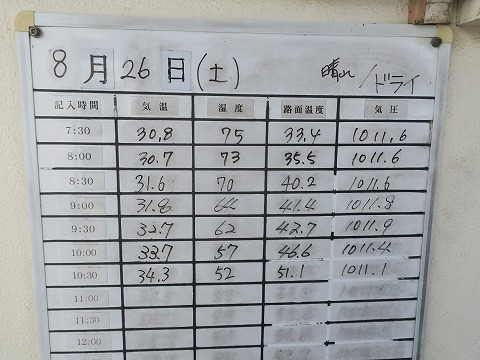 8月26日(土) 晴れ/ドライ
記入時間 気温 湿度 路面温度 気圧
7:30 30,8 75 33,4 1011,6
8:00 30.7 73 35.5 1011.6
8:30 31.6 70 40.2 1011.6
9:00 31.8 64 41.4 1011.8
9:30 32.7 62 42.7 1011.9
10:00 33.7 57 46.6 1011.4
10:30 34.3 52 51.1 1011.1
11:00
11:30
12:00